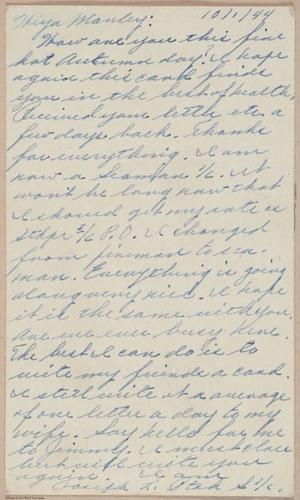 Hiya Manley: 10/1/44
How are you this fine
hot Autumn day? I hope
again this card finds
you in the best of health.
Received your letter etc. a
few days back. Thanks
for everything. I am
now a Seaman 1/c. It
won't be long now that
I should get my rate as
3/c P.O. I changed
from fireman to sea-
man. Everything is going
along very nice. I hope
it is the same with you.
Are we ever busy here.
The best I can do is to
write my friends a card.
I still write at a average
of one letter a day to my
wife. Say hello for me
to Jimmy. I must close
but will write you
again. I am
Joseph L. S 1/c.